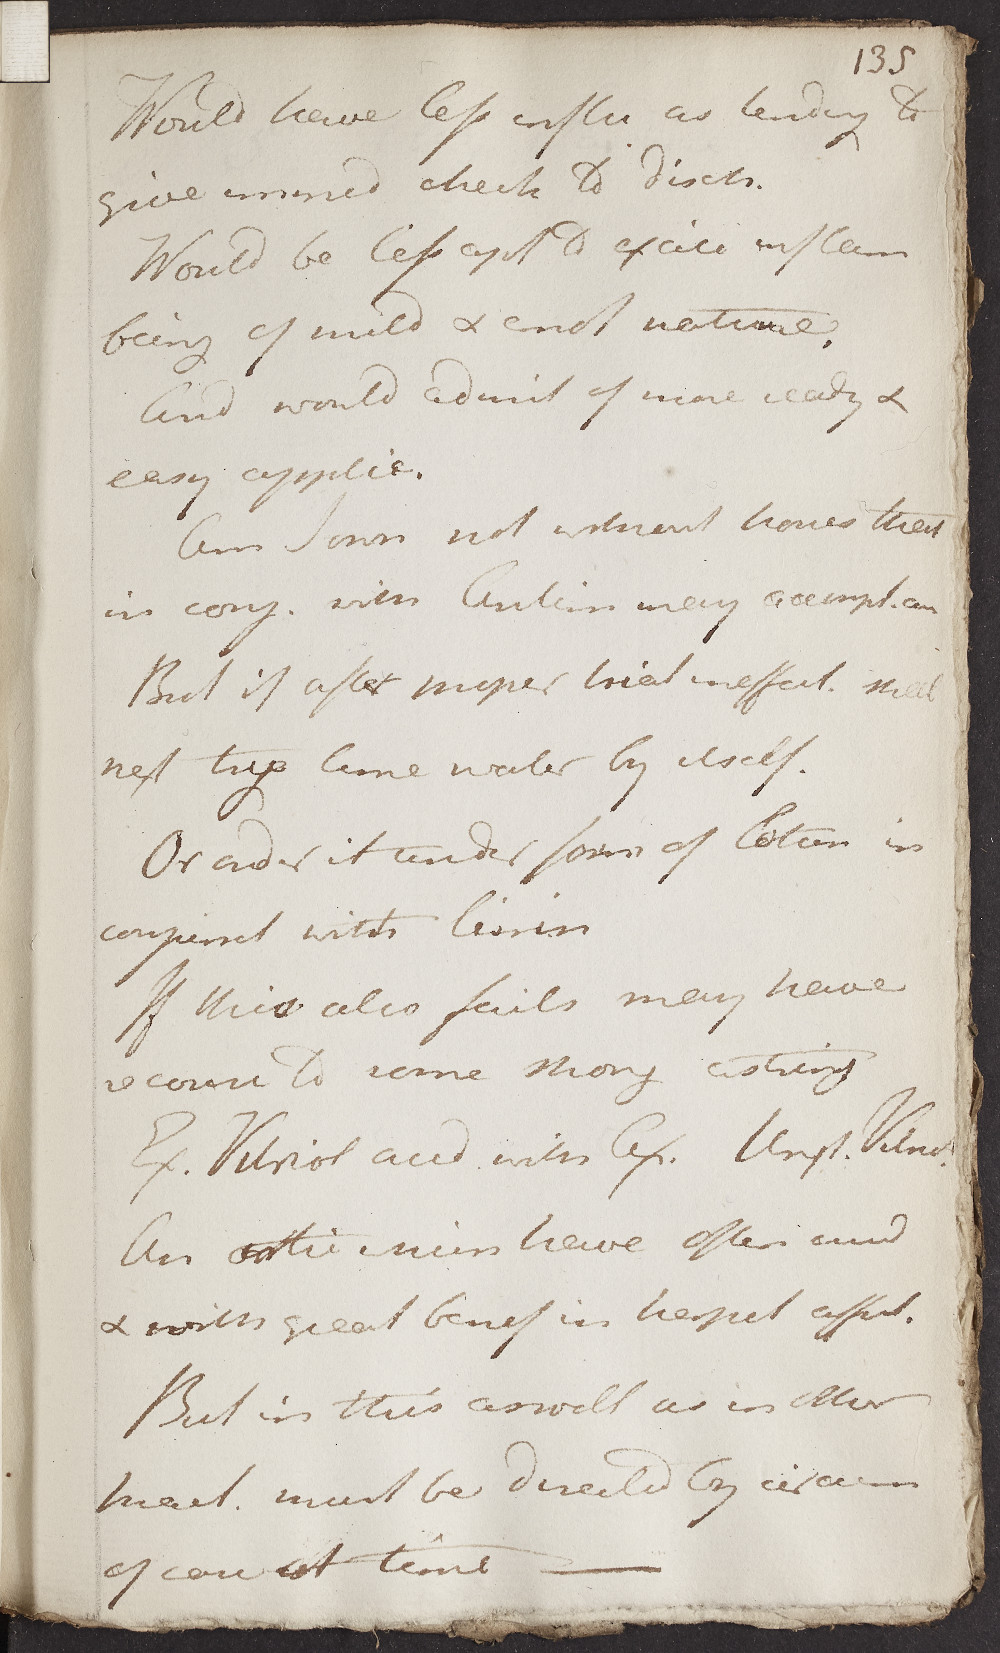 135
Would have less influ as tending to
give immed check to disch.
Would be less apt to excite inflam
being of mild & emol nature,
And would admit of more ready &
easy applic.
Am I own not without hopes that
in conj. with Antim may accompl. cu
But if after proper trial ineffect. shall
next trye lime water by itself.
Or order it under form of lotion in
conjunct with
If this also fails may have
recourse to some strong astring
Ex. Vitriol acid with Ax. Ungt. Vitriol.
An have often used
& with great benef in herpet affect.
But in this aswell as in other
treat. must be directed by circum
of case at time